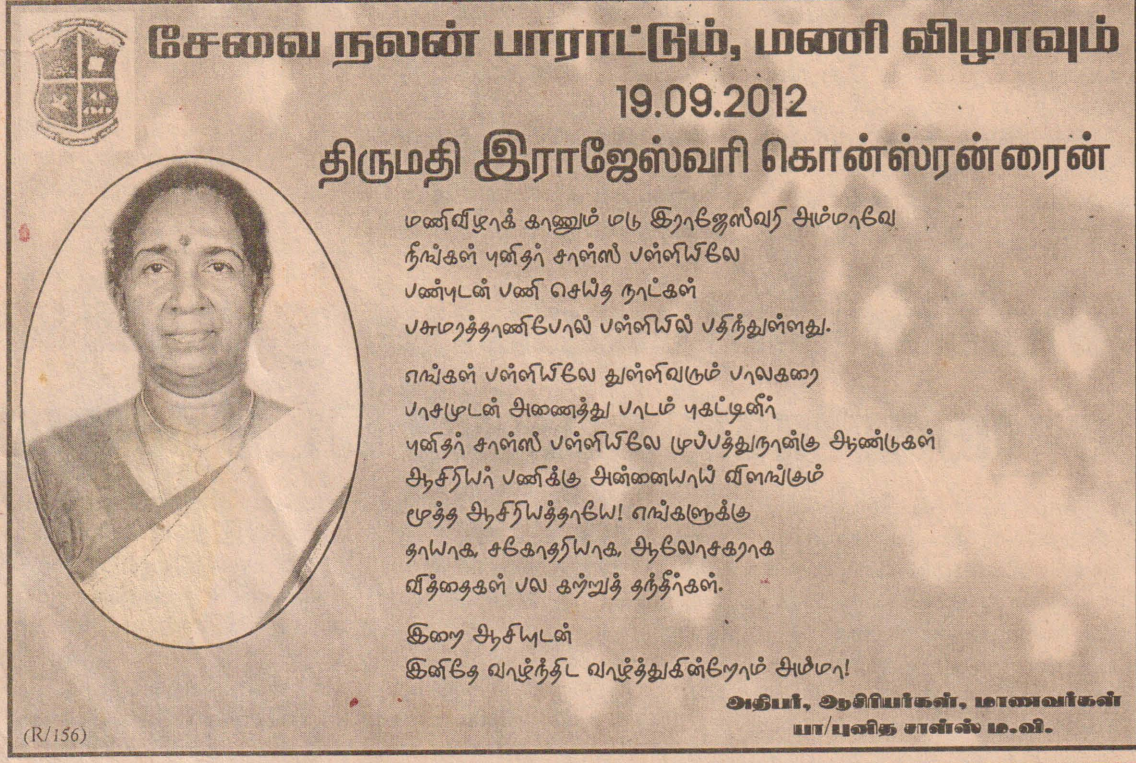 சேவை நலன் பாராட்டும், மணி விழாவும்
19.09.2012
திருமதி இராஜேஸ்வரி கொன்ஸ்ரன்ரைன்
மணிவிழாக் காணும் மடு இராஜேஸ்வரி அம்மாவே
நீங்கள் புனிதர் சாள்ஸ் பள்ளியிலே
பண்புடன் பணி செய்த நாட்கள்
பசுமரத்தாணிபோல் பள்ளியில் பதிந்துள்ளது.
எங்கள் பள்ளியிலே துள்ளிவரும் பாலகரை
பாசமுடன் அணைத்து பாடம் புகட்டினீர்
புனிதர் சாள்ஸ் பள்ளியிலே முப்பத்துநான்கு ஆண்டுகள்
ஆசிரியர் பணிக்கு அன்னையாய் விளங்கும்
மூத்த ஆசிரியத்தாயே! எங்களுக்கு
தாயாக, சகோதரியாக, ஆலோசகராக
வித்தைகள் பல கற்றுத் தந்தீர்கள்.
இறை ஆசியுடன்
இனிதே வாழ்ந்திட வாழ்த்துகின்றோம் அம்மா!
அதிபர், ஆசிரியர்கள், மாணவர்கள்
யா/புனித சாள்ஸ் ம.வி.
(R/156)